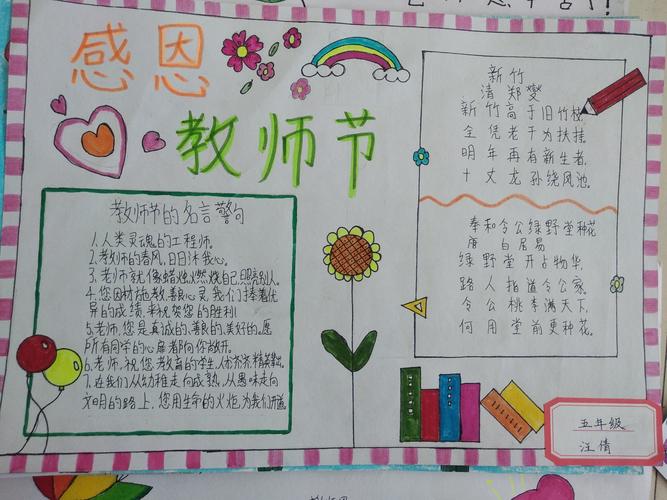 感恩
教师节
教师节的名言警句
1.人类灵魂的工程师。
2.老师的春风,日日沐我心。
3.老师就像蜡烛,燃烧自己,照亮别人。
4.您因材施教,善良心灵,我们接着优
异的成绩,来祝贺您的胜利!
5.老师,您是真诚的、善良的、美好的。愿
所有同学的心扉都向你敞开。
6.老师,祝您教育的学生,人才济济,精英辈出。
7.在我们从幼稚走向成熟,从愚昧走向
文明的路上,您用生命的火炬,为我们开道
新竹
清 郑燮
新竹高于旧竹枝,
全凭老干为扶持。
明年再有新生者,
十丈龙孙绕凤池。
奉和令公绿野堂种花
唐 白居易
绿野堂开占物华,
路人指道令公家。
令公桃李满天下,
何用堂前更种花。
五年级
汪倩